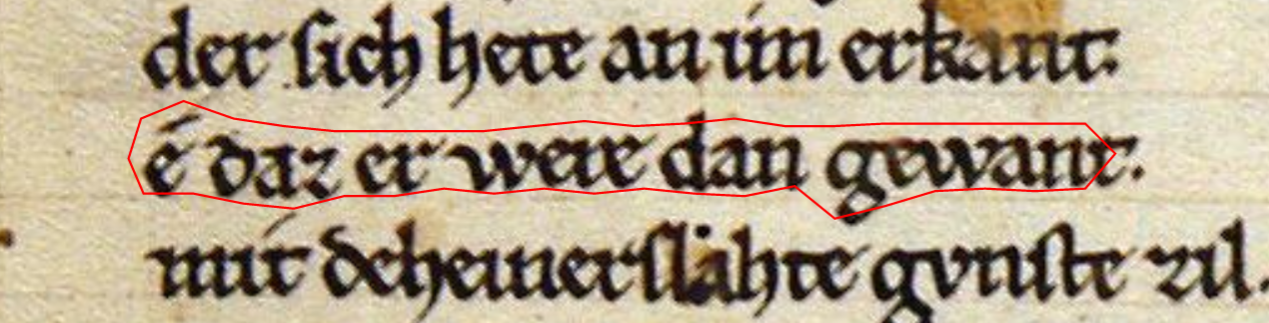 der sich hete an im erkant.
é daz er were dan gewant.
mit deheinerslahte gvnste zil.